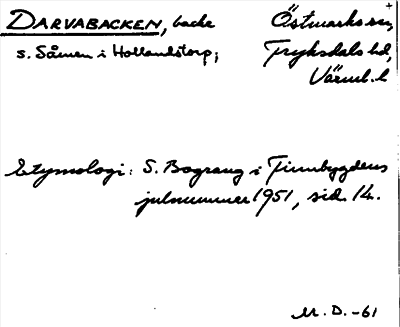 DARVABACKEN, backe
Östmarks sn,
s. Såmen i Hollandstorp;
Fryksdals hd,
Värml. l
Etymologi: S. Bograng i Finnbygdens
julnummer 1951, sid. 14.
M. D. -61